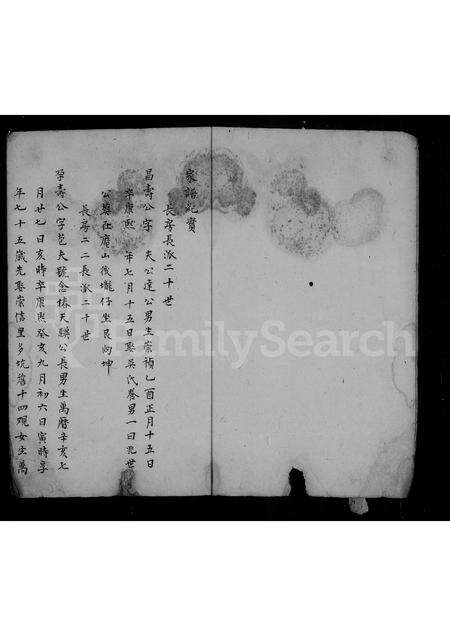 家譜紀實
長房長派二十世
昌壽公字 夫公達公男生崇禎乙酉正月十五日
辛康熙 年七月十五日娶吳氏養男一曰 世
公墓在 山後壠仔坐艮向坤
長房二二長派二十世
孕壽公字 夫號念椿天 公長男生萬曆辛亥七
月廿七日亥時辛康熙癸亥九月初六日寅時享
年七十五歲先娶崇信里多坑詹十四觀女生萬
FamilySearch